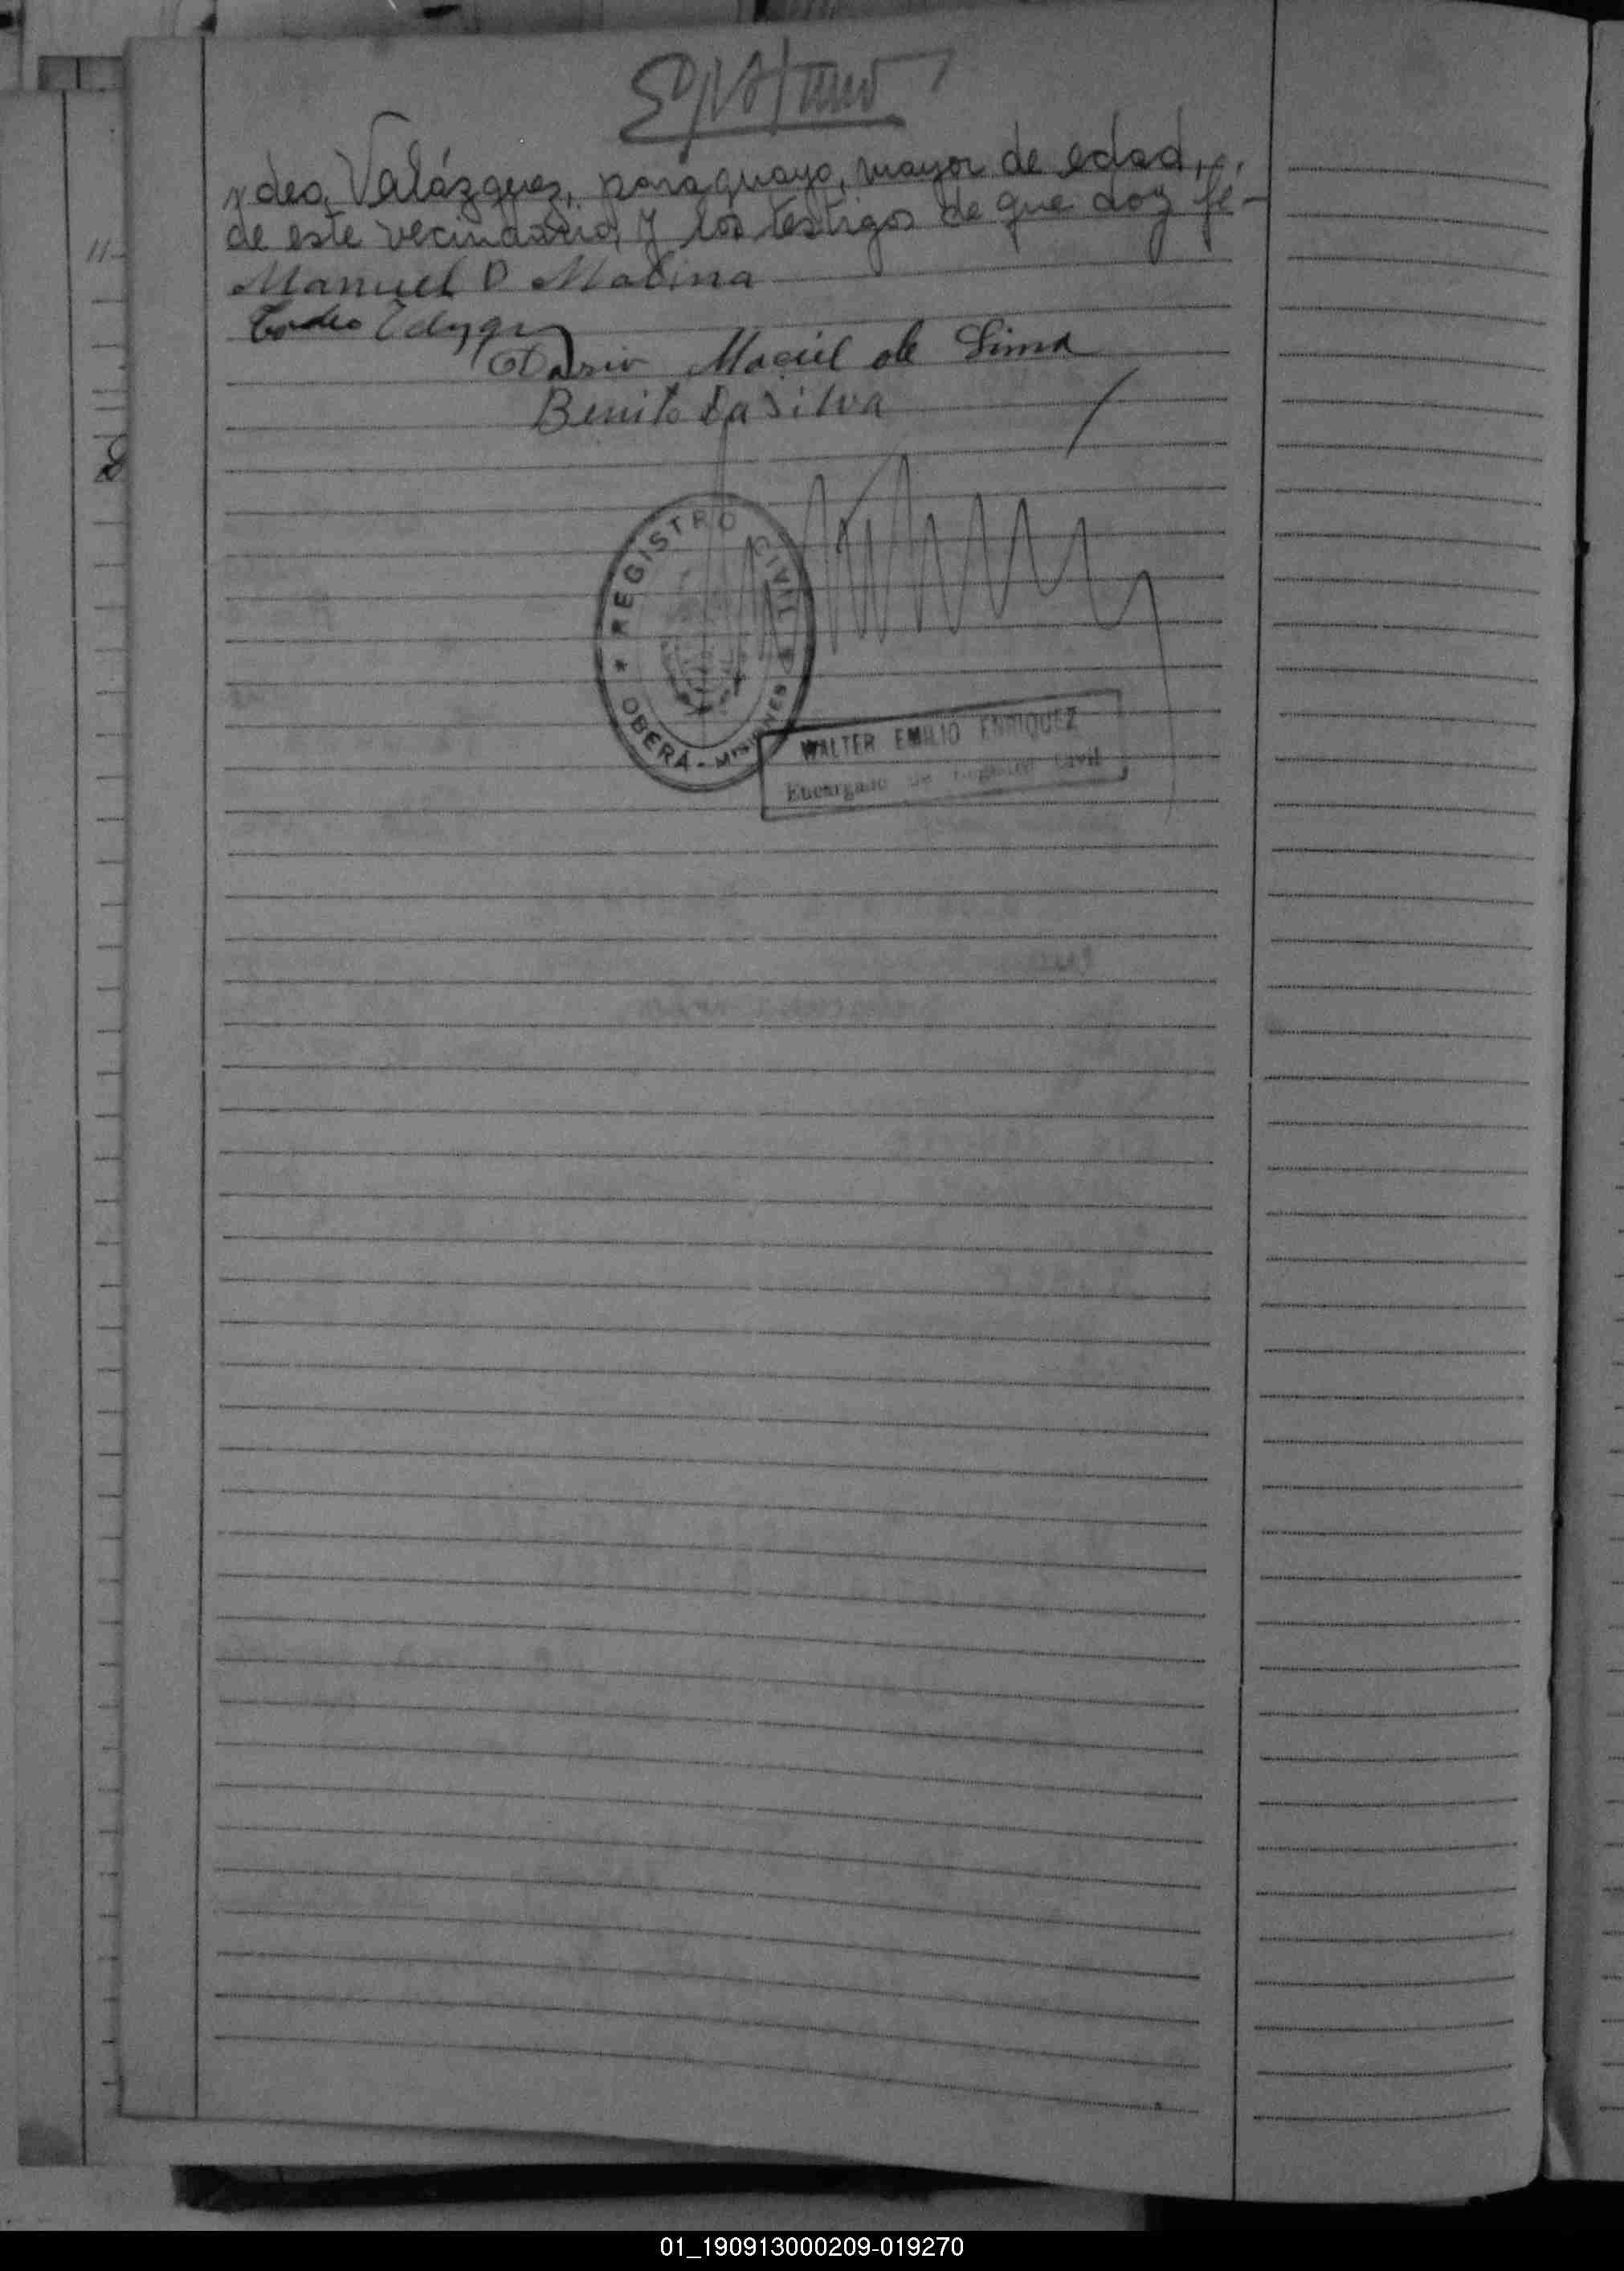 deo, Valázquez, paraguayo, mayor de edad,
de este vecindario, y los testigos de que doy fé-
Manuel D Molina
Dario Maciel de Lima
Benito Da Silva
REGISTRO CIVIL
OBERÁ - MISIONES
WALTER EMILIO ENRIQUEZ
Encargado de Registro Civil
01_190913000209-019270